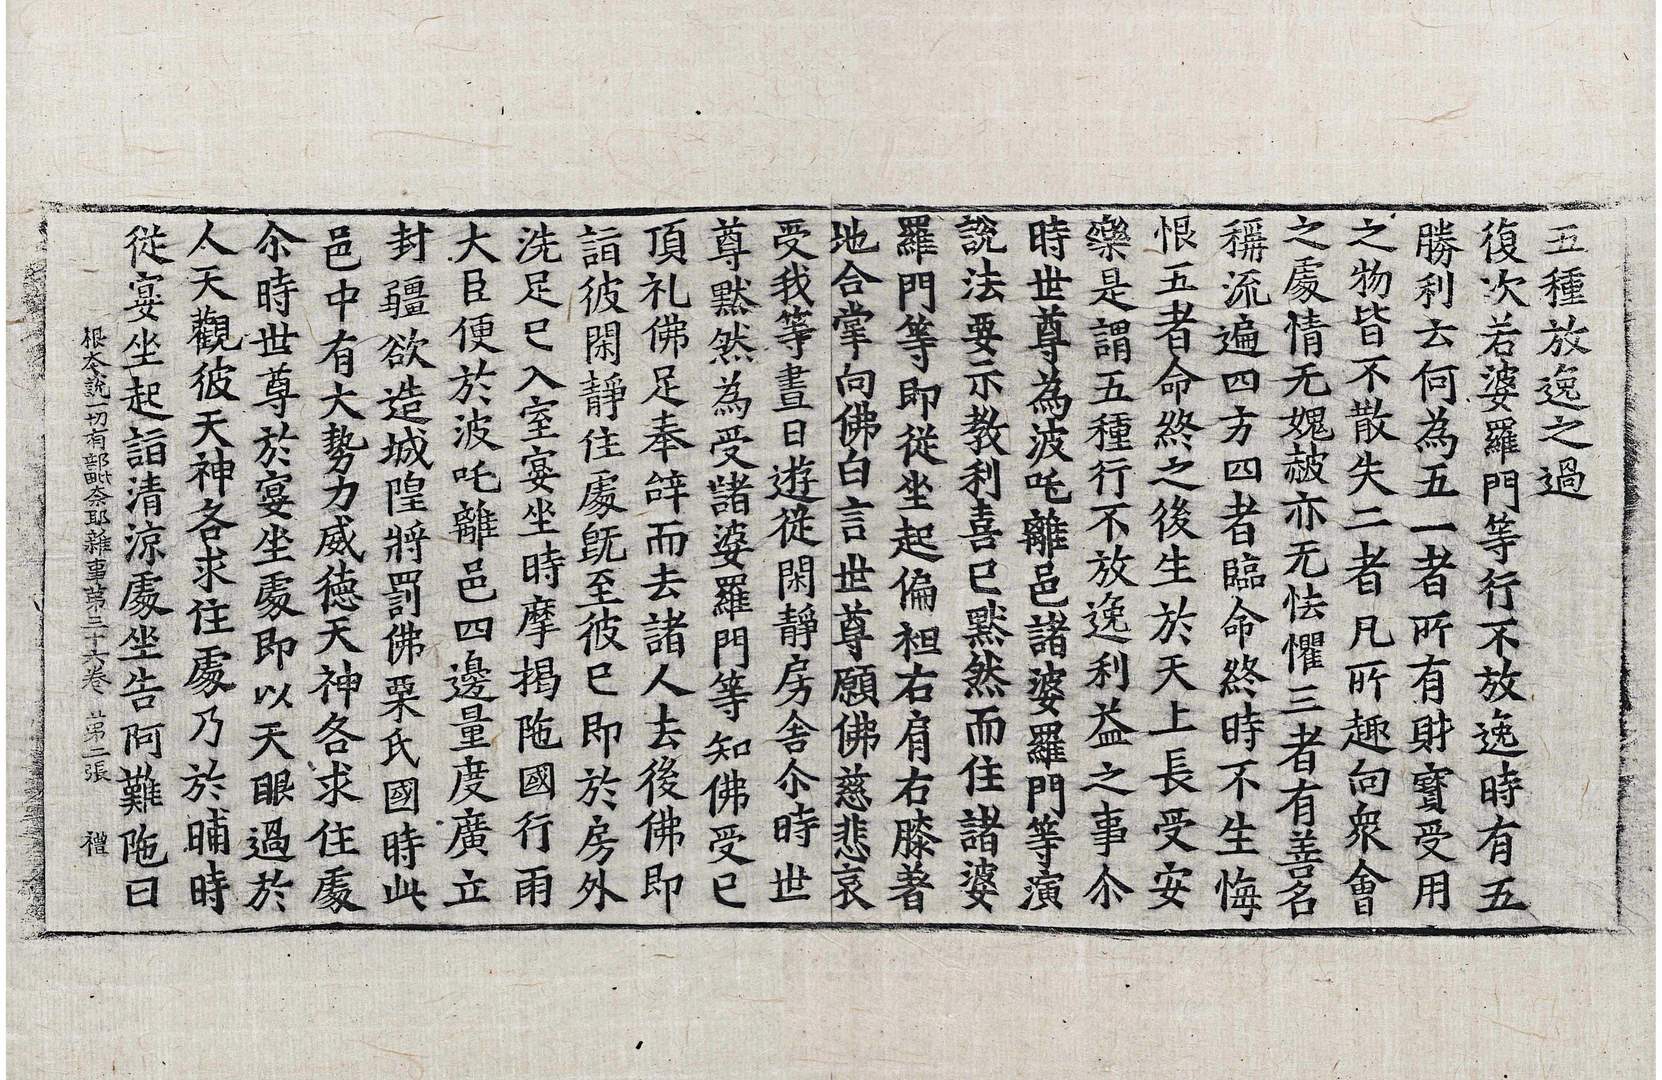 五種放逸之過
復次若婆羅門等行不放逸時有五
勝利云何為五一者所有財寶受用
之物皆不散失二者凡所趣向衆會
之處情无媿赧亦无怯懼三者有善名
稱流遍四方四者臨命終時不生悔
恨五者命終之後生於天上長受安
樂是謂五種行不放逸利益之事尒
時世尊為波吒離邑諸婆羅門等演
說法要示教利喜已默然而住諸婆
羅門等即從坐起偏袒右肩右膝著
地合掌向佛白言世尊願佛慈悲哀
受我等晝日遊從閑靜房舍尒時世
尊默然為受諸婆羅門等知佛受已
頂礼佛足奉辝而去諸人去後佛即
詣彼閑靜住處旣至彼已即於房外
洗足已入室宴坐時摩揭陁國行雨
大臣便於波吒離邑四邊量度廣立
封疆欲造城隍將罰佛栗氏國時此
邑中有大勢力威德天神各求住處
尒時世尊於宴坐處即以天眼過於
人天觀彼天神各求住處乃於晡時
從宴坐起詣清涼處坐告阿難陁曰
根本說一切有部毗奈耶雜事第三十六卷 第二張 禮